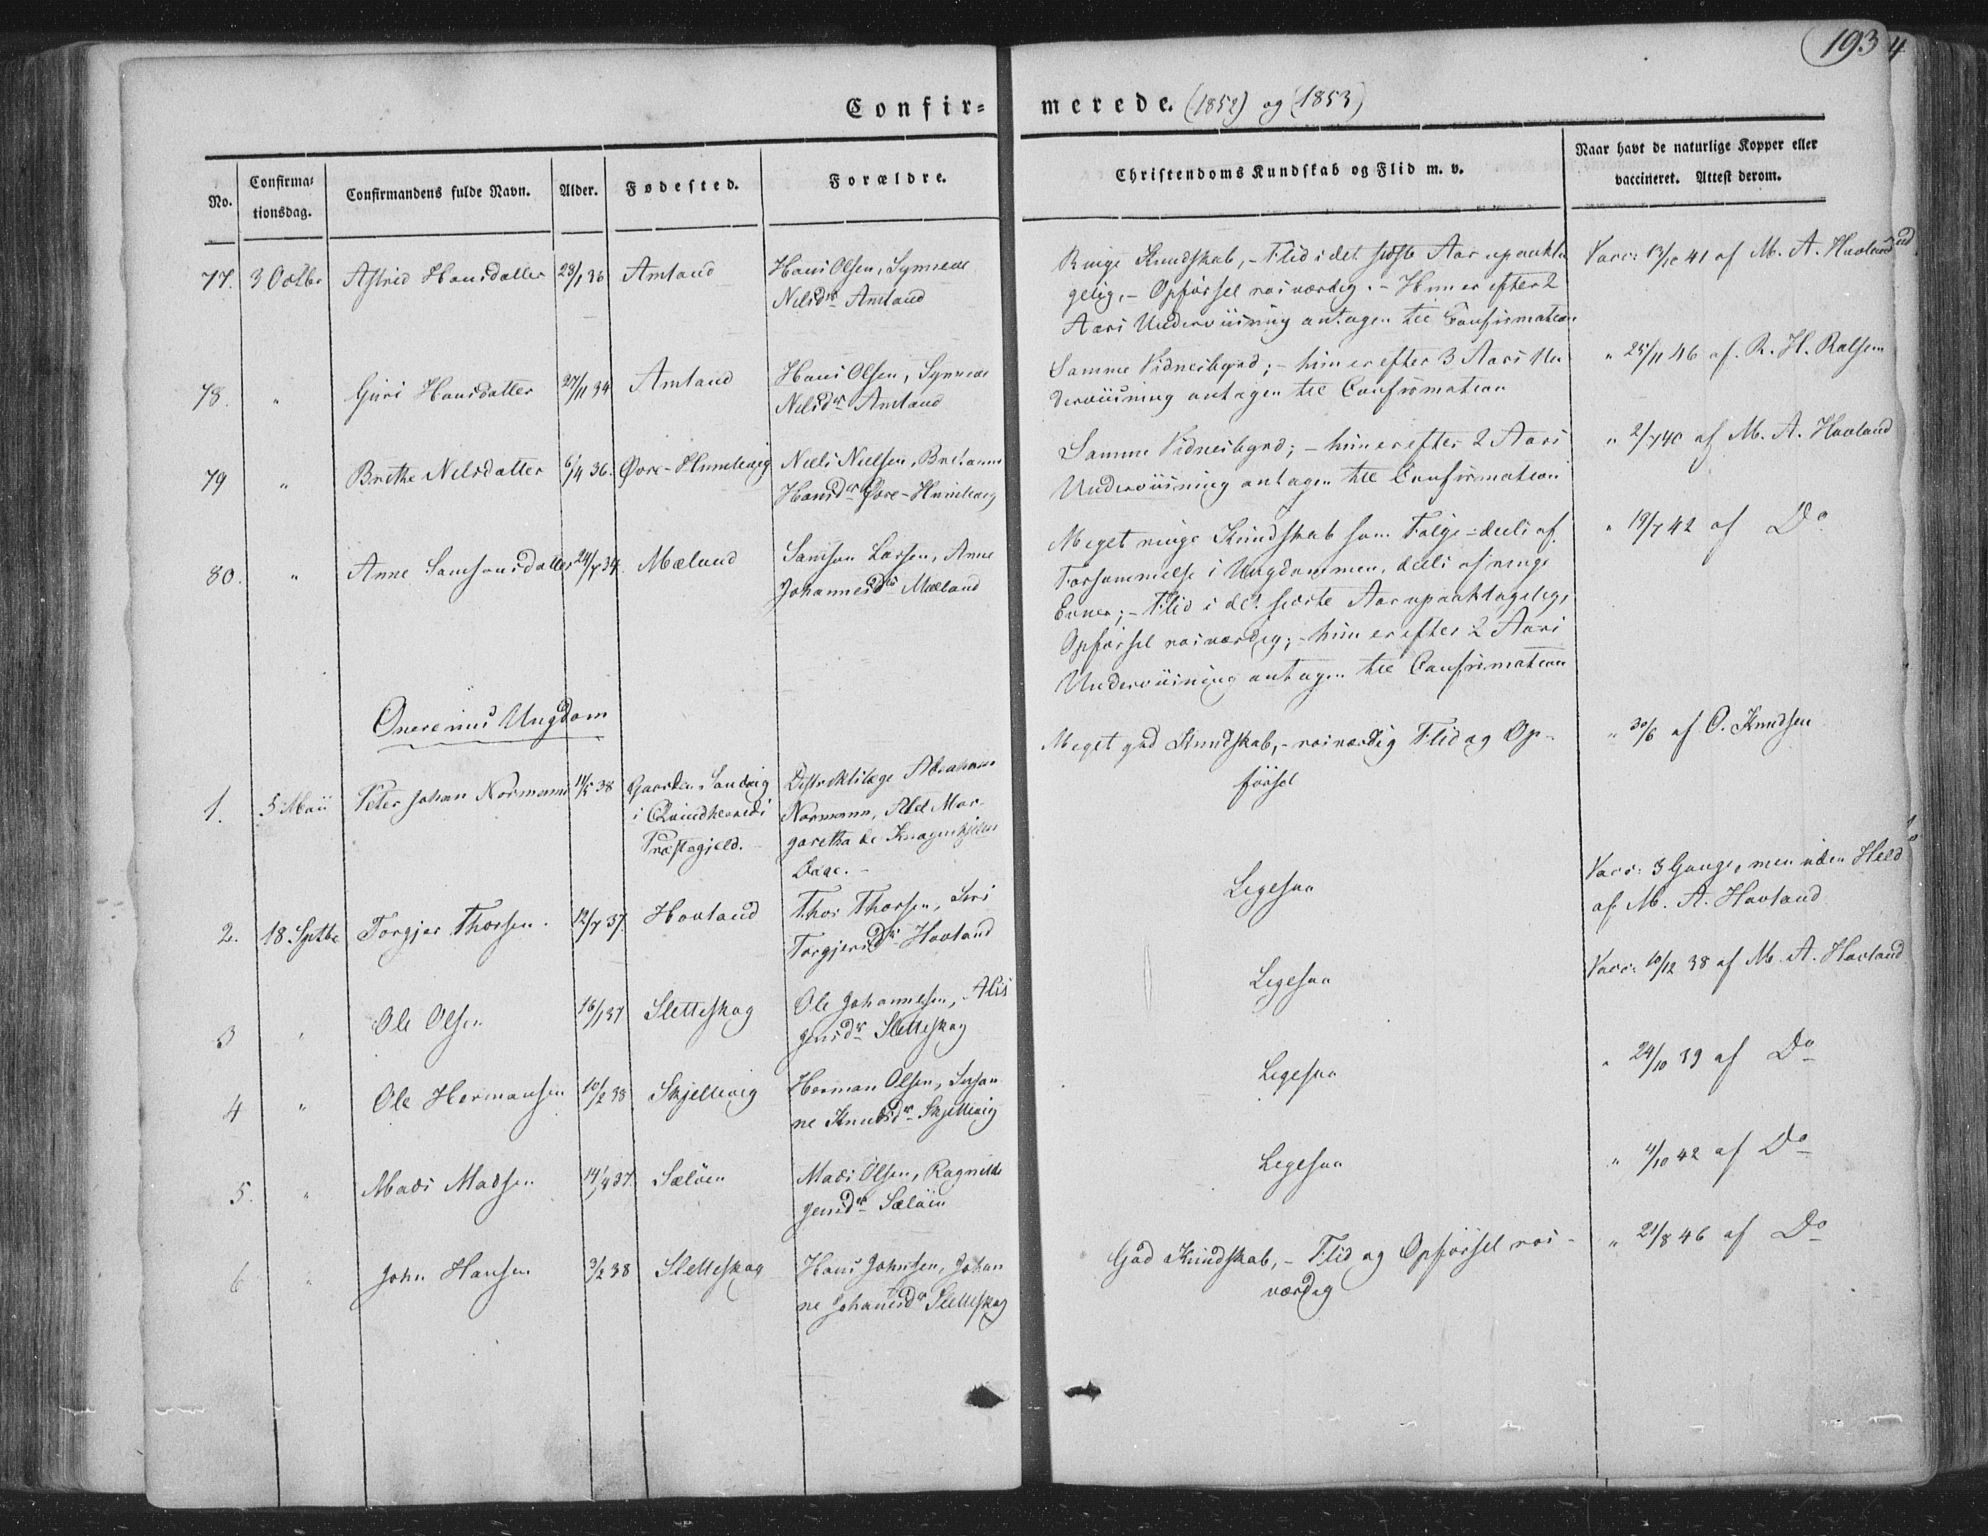 193 4
Confir- merede. (1852) og (1853)
No.
Confirma-
tionsdag.
Confirmandens fulde Navn.
Alder.
Fødested.
Forældre.
Christendoms Kundskab og Flid m. v.
Naar havt de naturlige Kopper eller
vaccineret. Attest derom.
77. 3 Octbr Astrid Hansdatter 23/1 36 Amland
Hans Olsen, Synneve
Nilsdr Amland
Ringe Kundskab, - Flid i det sidste Aar upaakla
gelig, - Opførsel roisværdig. - Hun er efter 2
Aars Underviisning antagen til Confirmation
Vacc: 13/10 41 af M. A. Havland
78. " Guri Hansdatter 27/11 34 Amland
Hans Olsen, Synneve
Nilsdr Amland
Samme Vidnesbyrd; - hun er efter 3 Aars Un
derviisning antagen til Confirmation
" 25/11 46 af R. H. Ralsem
79 " Brithe Nilsdatter 6/4 36. Øvre-Humlevig
Niels Nielsen, Brithanna
Hansdr Øvre-Humlevig
Samme Vidnesbyrd; - hun er efter 2 Aars
Underviisning antagen til Confirmation
" 2/7 40 af M. A. Havland
80. " Anne Samsonsdatter 24/7 34. Mæland
Samson Larsen, Anne
Johannesdr Mæland
Meget ringe Kundskab som Følge deels af
Forsømmelse i Ungdommen, deels af ringe
Evner; - Flid i det sidste Aar upaaklagelig,
Opførsel roisværdig; - hun er efter 2 Aars
Underviisning antagen til Confirmation
" 19/7 42 af Do
Ungdom
1. 5 Maii Peter Johan Normann 11/5 38
Gaarden Sandvig
i Qvindherreds
Præstegjeld.
Distriktslæge Abraham
Normann, Alet Mar-
garetha de
Meget god Kundskab, - roisværdig Flid og Op-
førsel
" 30/6 af O. Knudsen
2. 18 Septbr Torgjer Thorsen. 12/7 37. Havland
Thor Thorsen, Siri
Torgjersdr Havland
Ligesaa
Vacc: 3 Gange, men uden Held
af M. A. Havland
3 " Ole Olsen 16/1 37 Sletteskog
Ole Johannesen, Alis
Jensdr Sletteskog
Ligesaa
Vacc: 10/12 38 af M. A. Havland
4 " Ole Hermansen 10/2 38 Skjellevig
Herman Olsen, Serian
ne Knudsdr Skjellevig
Ligesaa
" 24/10 39 af Do
5. " Mads Madsen 14/4 37. Sæløen
Mads Olsen, Ragnilde
Jensdr Sæløen
Ligesaa
" 4/10 42 af Do
6 " John Hansen 3/2 38 Sletteskog
Hans Johnsen, Johan
ne Johansdr Sletteskog
God Kundskab, - Flid og Opførsel rois-
værdig
" 21/8 46 af Do